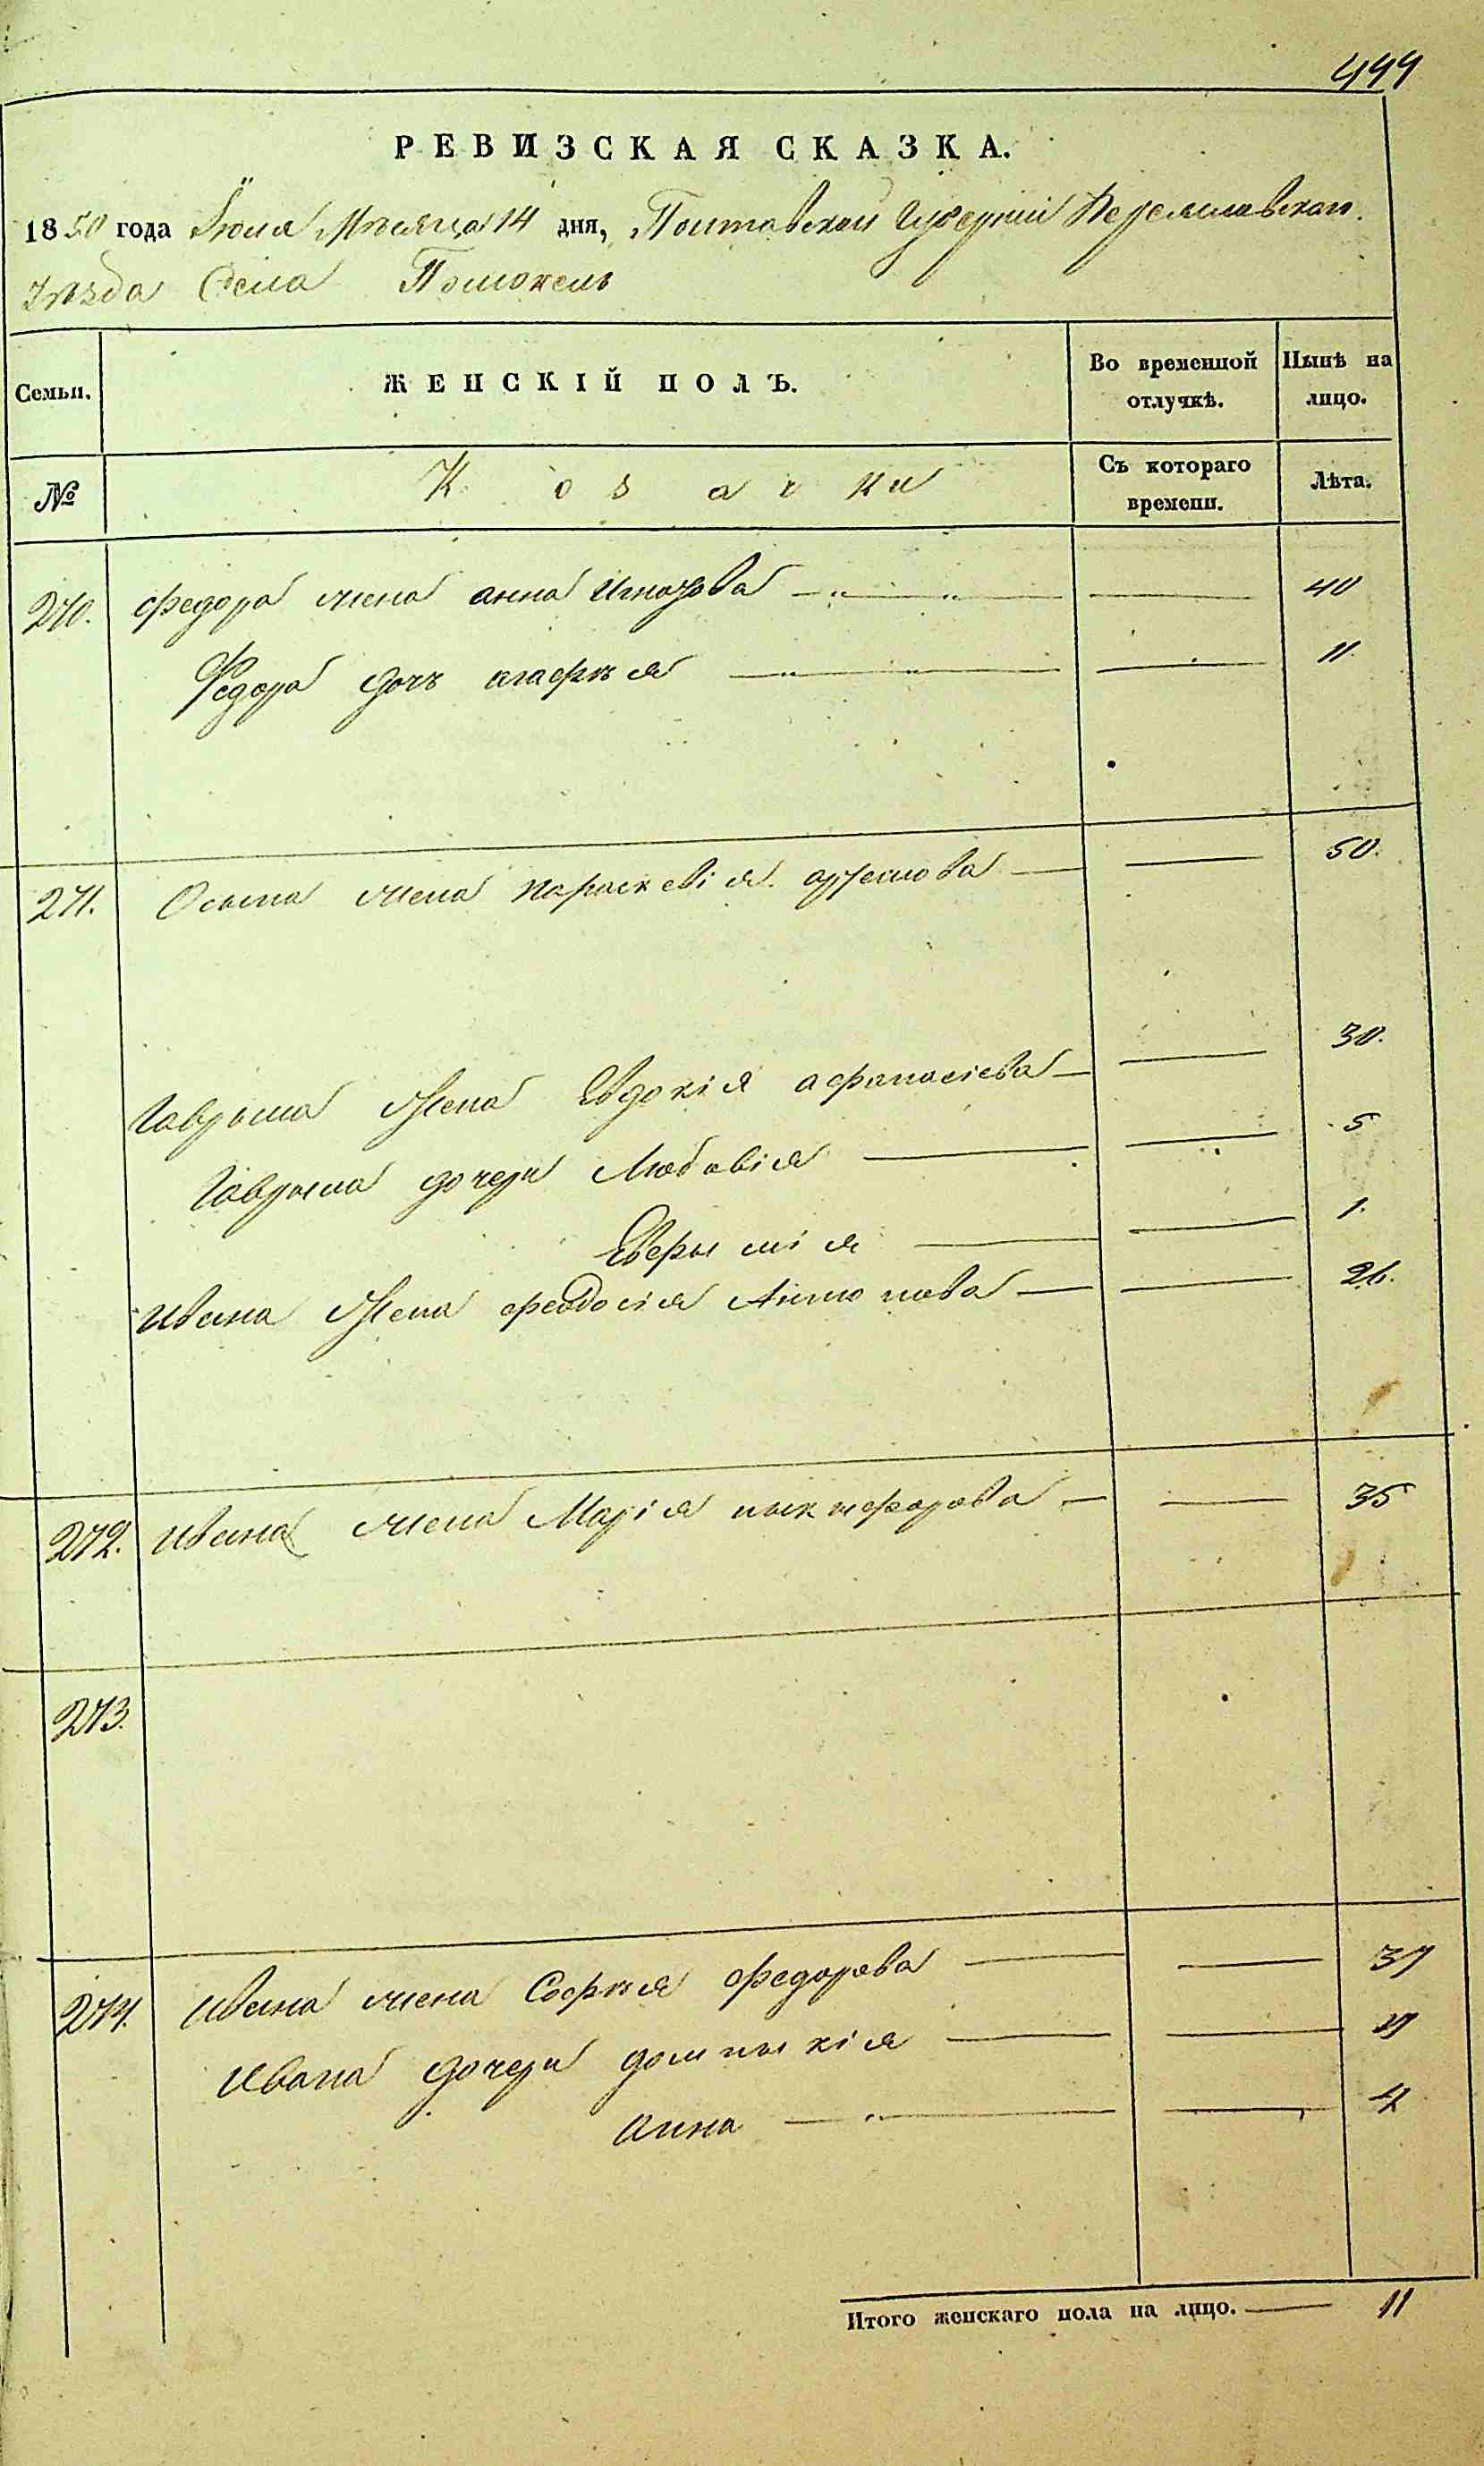 444
РЕВИЗСКАЯ СКАЗКА.
1850 года Іюля Мѣсяца 14 дня, Полтавской Губерніи Переяславскаго
Уѣзда Села Помокель
Семьи.
ЖЕНСКІЙ ПОЛЪ.
Во временной отлучкѣ.
Нынѣ на лицо.
№
Козачки
Съ котораго времени.
Лѣта.
270. Федора жена анна Игнатова — 40
Федора дочь агафія — 11.
271. Осипа жена параскевія артемова — 50.
Гаврыла жена Евдокія афанасіева — 30.
Гаврыла дочери Любовія — 5
1.
Ивана жена феодосія Антонова — 26.
272. Ивана жена Марія никифорова — 35
273.
274. Ивана жена Софія федорова — 37
Ивана дочери домникія —
анна — 4
Итого женскаго пола на лицо. — 11